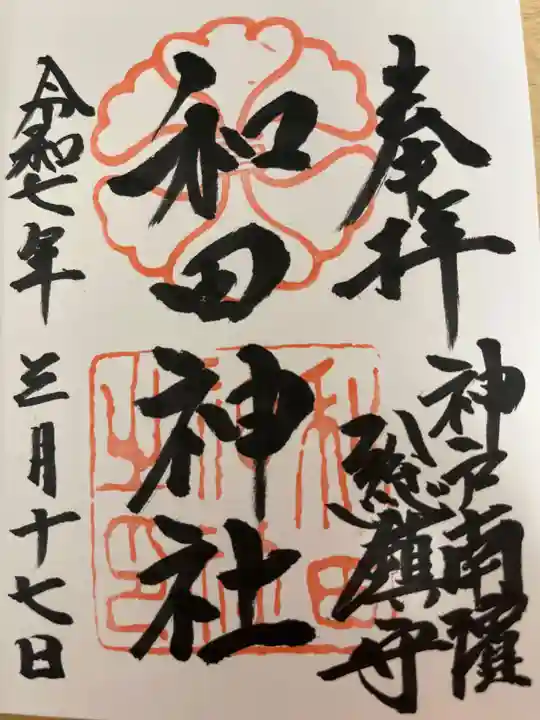 奉拝
神戸南曜
総鎮守
和田神社
令和七年三月十七日